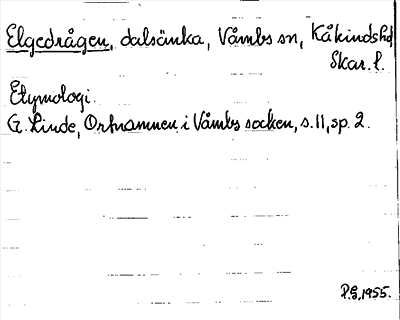 Elgedrågen, dalsänka, Våmbs sn, Kåkindshd
Skar. l.
Etymologi.
G. Linde, Ortnamnen i Våmbs socken, s. 11, sp. 2.
P.G. 1955.